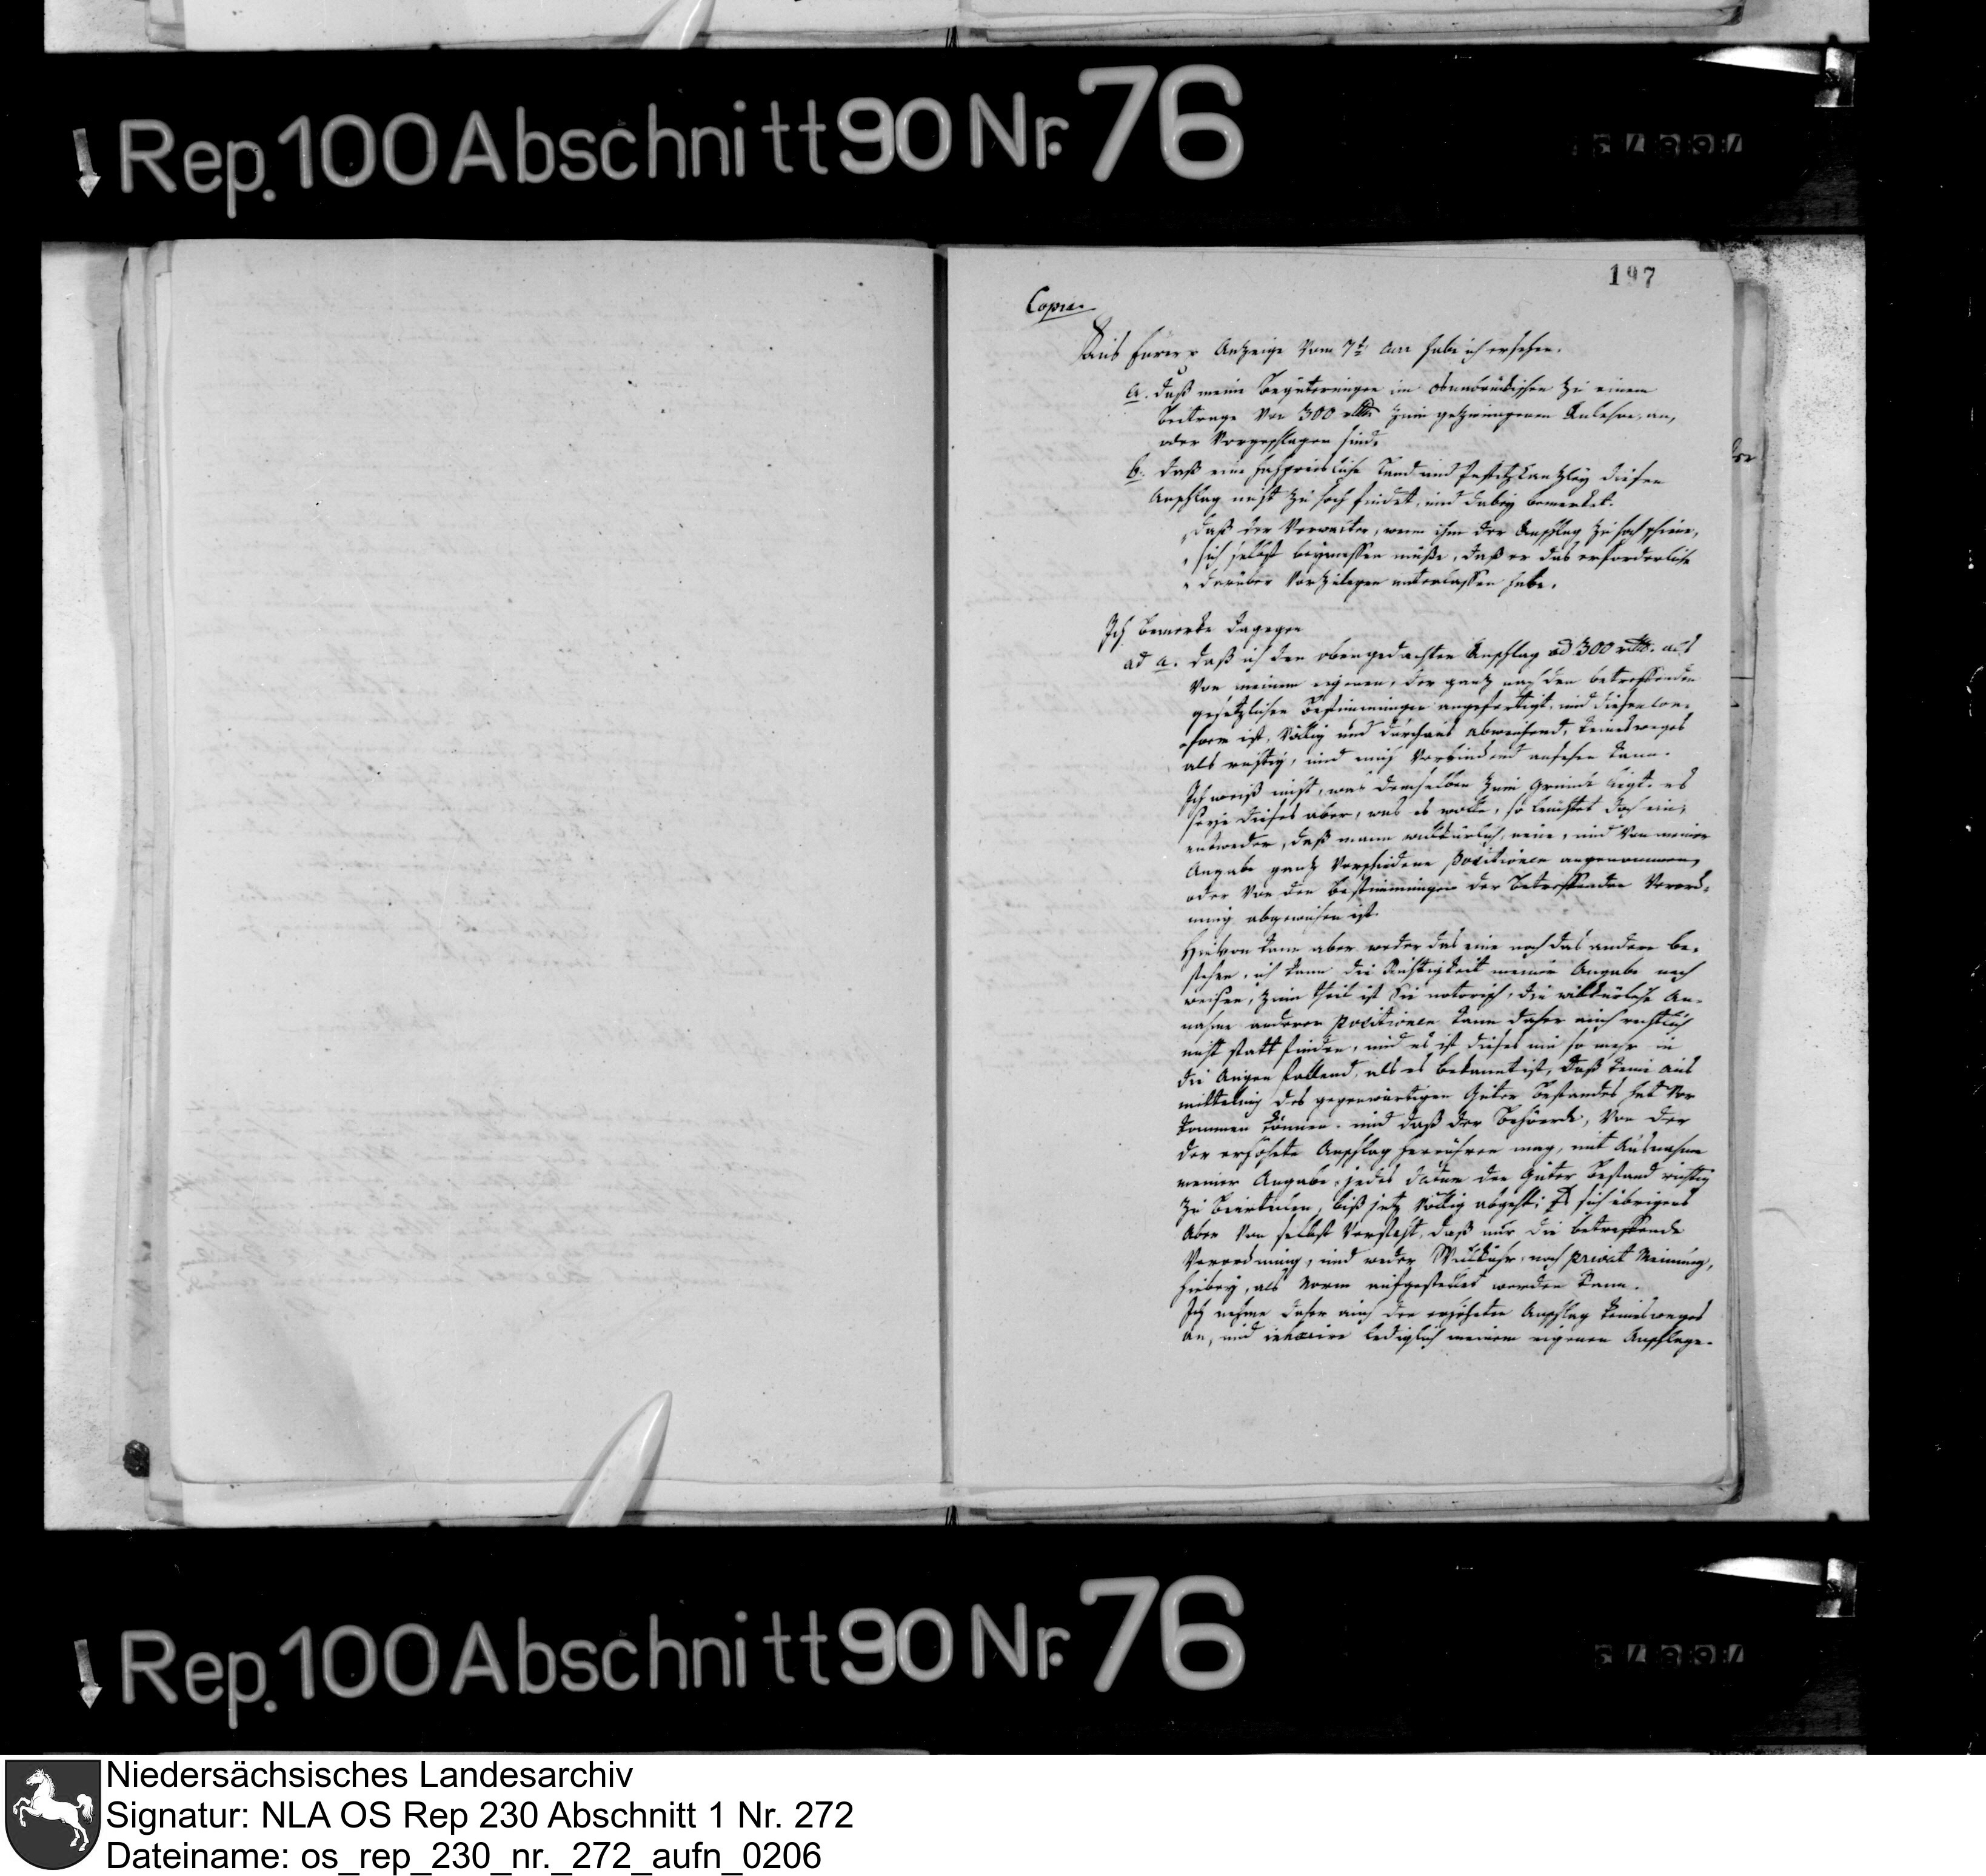 Rep. 100 Abschnitt 90 Nr. 76
197
Copia.
Aus Eurer Anzeige vom 7t. curr habe ich ersehen.
a. daß meine Begüterungen im Osnabrückischen zu einem
Beitrage von 300 rthlr zum gezwungenen Anlehne an,
oder vorgeschlagen sind,
b. daß eine hochpreisliche Land und Justitz Cantzley diesen
Anschlag nicht zu hoch findet, und dabey bemerket.
„daß der Verwalter, wenn ihm der Anschlag zu hoch schiene,
„sich selbst beyzumessen müße, daß er das erforderliche
„darüber vorzulegen unterlassen habe.
Ich bemerke dagegen
ad a. daß ich den obengedachten Anschlag ad 300 rthlr. als
von meinem eigenen, der gantz nach den betreffenden
gesetzlichen Bestimmungen angefertigt, und diesen con-
form ist, völlig und durchaus abweichend, keinesweges
als richtig, und mich verbindend ansehen kann.
Ich weiß nicht, was demselben zum Grunde liegt. es
seye dieses aber, was es wolle, so leuchtet doch ein,
entweder, daß mann willkürlich, neue, und von meiner
Angabe gantz verschiedene positionen angenommen,
oder von den Bestimmungen der betreffenden Verord-
nung abgewichen ist.
Hievon kann aber weder das eine noch das andere be-
stehen, ich kann die Richtigkeit meiner Angabe nach
weisen, zum theil ist Sie notorisch, die willkürliche An-
nahme anderer positionen kann daher auch rechtlich
nicht statt finden, und es ist dieses um so mehr in
die Augen fallend, als es bekannt ist, daß keine Aus
mittelung des gegenwärtigen Güter Bestandes hat vor
kommen können. und daß der Behoerde, von der
der erhöhete Anschlag herrühren mag, mit Ausnahme
meiner Angabe, jedes datum den Güter Bestand richtig
zu beurteilen, biß jetz völlig abgeht; Es sich übrigens
Aber von selbst versteht, daß nur die betreffende
Verordnung, und weder Willkühr, noch privat Meinung,
hiebey, als Norm aufgestellet werden kann.
Ich nehme daher auch den erhöheten Anschlag keinesweges
an, und inhaerire lediglich meinem eigenen Anschlage.
Rep. 100 Abschnitt 90 Nr. 76
Niedersächsisches Landesarchiv
Signatur: NLA OS Rep 230 Abschnitt 1 Nr. 272
Dateiname: os_rep_230_nr._272_aufn_0206